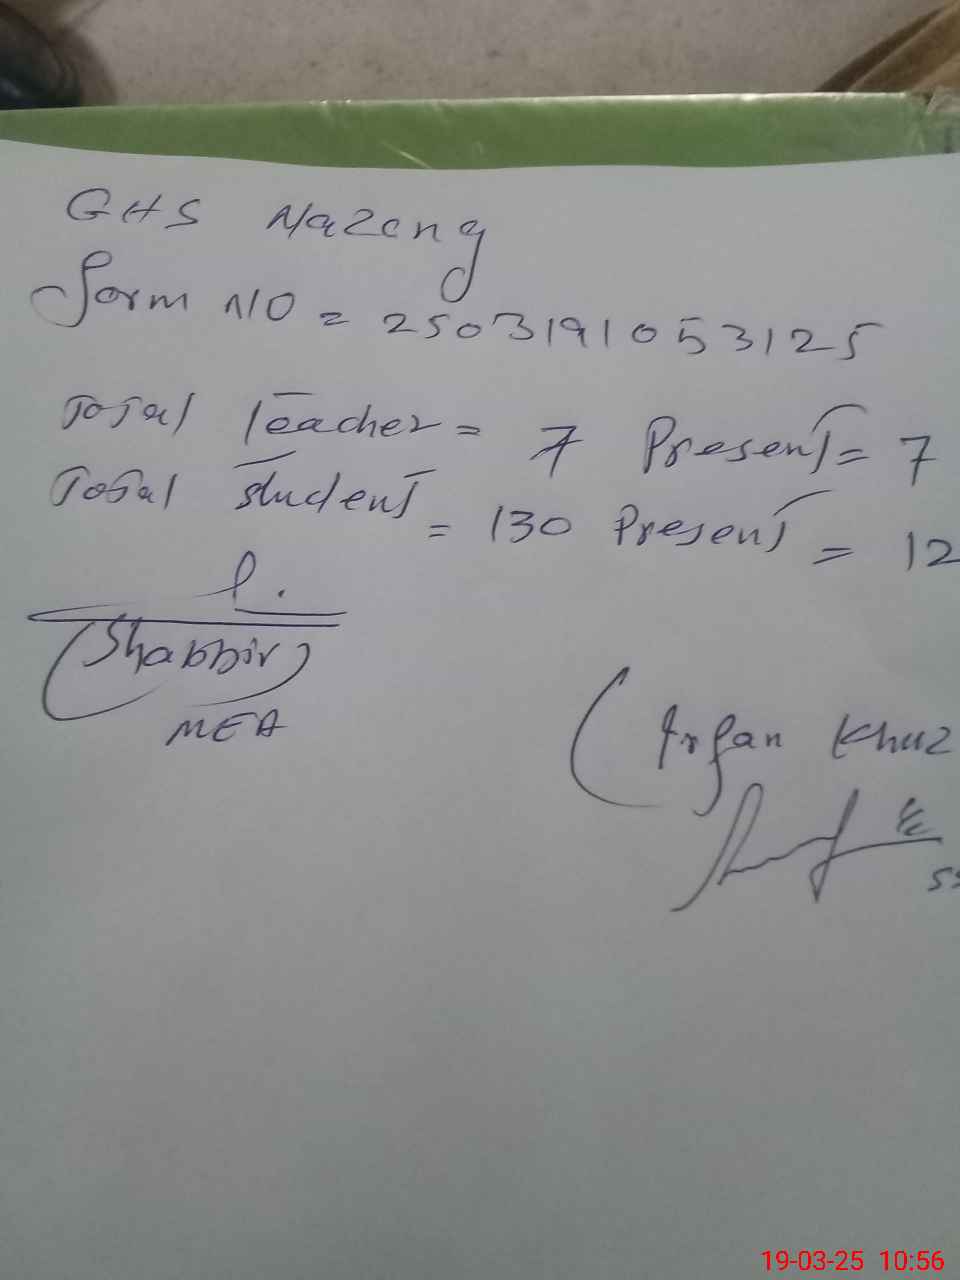 GHS Nazeng
Form NO = 2503191053125
Total Teacher = 7 Present = 7
Total student = 130 Present = 12
(Shabbir)
MEA
(Irfan Khuz
19-03-25 10:56